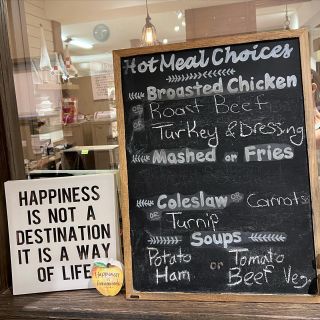 Hot Meal Choices
Broasted Chicken
or Roast Beef
or Turkey & Dressing
Mashed or Fries
Coleslaw or Carrots
or Turnip
Soups
Potato or Tomato
Ham Beef Veg
HAPPINESS
IS NOT A
DESTINATION
IT IS A WAY
OF LIFE
Happiness